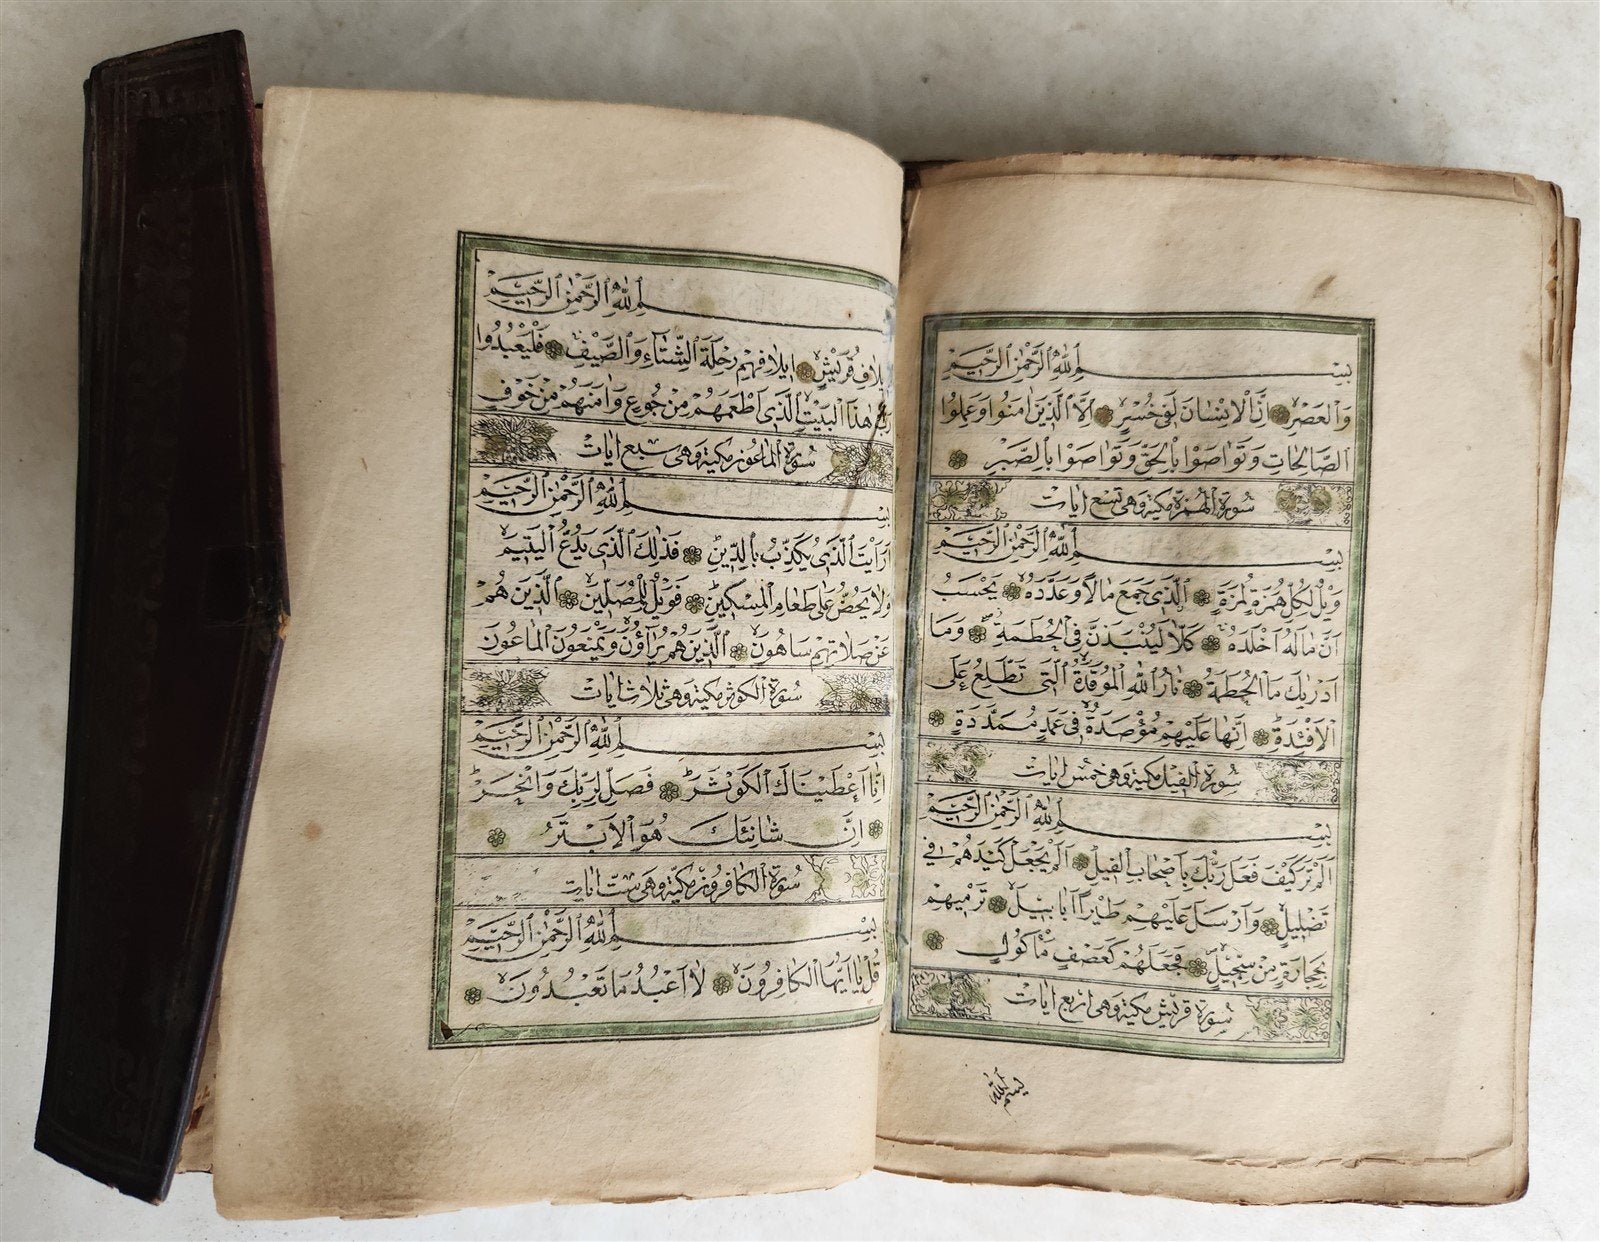 بِسْمِ ٱللّٰهِ ٱلرَّحْمٰنِ ٱلرَّحِيمِ
وَالْعَصْرِ اِنَّ الْاِنْسَانَ لَفِى خُسْرٍ اِلَّا الَّذِينَ اٰمَنُوا وَعَمِلُوا
الصَّالِحَاتِ وَتَوَاصَوْا بِالْحَقِّ وَتَوَاصَوْا بِالصَّبْرِ
سُورَةُ الْهُمَزَةِ مَكِّيَّةٌ وَهِىَ تِسْعُ اٰيَاتٍ
بِسْمِ ٱللّٰهِ ٱلرَّحْمٰنِ ٱلرَّحِيمِ
وَيْلٌ لِكُلِّ هُمَزَةٍ لُمَزَةٍ الَّذِى جَمَعَ مَالًا وَعَدَّدَهُ يَحْسَبُ
اَنَّ مَالَهُ اَخْلَدَهُ كَلَّا لَيُنْبَذَنَّ فِى الْحُطَمَةِ وَمَا
اَدْرٰيكَ مَا الْحُطَمَةُ نَارُ اللّٰهِ الْمُوقَدَةُ الَّتِى تَطَّلِعُ عَلَى
الْاَفْئِدَةِ اِنَّهَا عَلَيْهِمْ مُؤْصَدَةٌ فِى عَمَدٍ مُمَدَّدَةٍ
سُورَةُ الْفِيلِ مَكِّيَّةٌ وَهِىَ خَمْسُ اٰيَاتٍ
بِسْمِ ٱللّٰهِ ٱلرَّحْمٰنِ ٱلرَّحِيمِ
اَلَمْ تَرَ كَيْفَ فَعَلَ رَبُّكَ بِاَصْحَابِ الْفِيلِ اَلَمْ يَجْعَلْ كَيْدَهُمْ فِى
تَضْلِيلٍ وَاَرْسَلَ عَلَيْهِمْ طَيْرًا اَبَابِيلَ تَرْمِيهِمْ
بِحِجَارَةٍ مِنْ سِجِّيلٍ فَجَعَلَهُمْ كَعَصْفٍ مَأْكُولٍ
سُورَةُ قُرَيْشٍ مَكِّيَّةٌ وَهِىَ اَرْبَعُ اٰيَاتٍ
بِسْمِ ٱللّٰهِ
ـمِ ٱللّٰهِ ٱلرَّحْمٰنِ ٱلرَّحِيمِ
يلَافِ قُرَيْشٍ اٖيلَافِهِمْ رِحْلَةَ الشِّتَاءِ وَالصَّيْفِ فَلْيَعْبُدُوا
رَبَّ هٰذَا الْبَيْتِ الَّذِى اَطْعَمَهُمْ مِنْ جُوعٍ وَاٰمَنَهُمْ مِنْ خَوْفٍ
سُورَةُ الْمَاعُونِ مَكِّيَّةٌ وَهِىَ سَبْعُ اٰيَاتٍ
بِسْمِ ٱللّٰهِ ٱلرَّحْمٰنِ ٱلرَّحِيمِ
اَرَاَيْتَ الَّذِى يُكَذِّبُ بِالدِّينِ فَذٰلِكَ الَّذِى يَدُعُّ الْيَتِيمَ
وَلَا يَحُضُّ عَلٰى طَعَامِ الْمِسْكِينِ فَوَيْلٌ لِلْمُصَلِّينَ الَّذِينَ هُمْ
عَنْ صَلَاتِهِمْ سَاهُونَ الَّذِينَ هُمْ يُرَاؤُنَ وَيَمْنَعُونَ الْمَاعُونَ
سُورَةُ الْكَوْثَرِ مَكِّيَّةٌ وَهِىَ ثَلَاثُ اٰيَاتٍ
بِسْمِ ٱللّٰهِ ٱلرَّحْمٰنِ ٱلرَّحِيمِ
اِنَّا اَعْطَيْنَاكَ الْكَوْثَرَ فَصَلِّ لِرَبِّكَ وَانْحَرْ
اِنَّ شَانِئَكَ هُوَ الْاَبْتَرُ
سُورَةُ الْكَافِرُونَ مَكِّيَّةٌ وَهِىَ سِتُّ اٰيَاتٍ
بِسْمِ ٱللّٰهِ ٱلرَّحْمٰنِ ٱلرَّحِيمِ
قُلْ يَا اَيُّهَا الْكَافِرُونَ لَا اَعْبُدُ مَا تَعْبُدُونَ